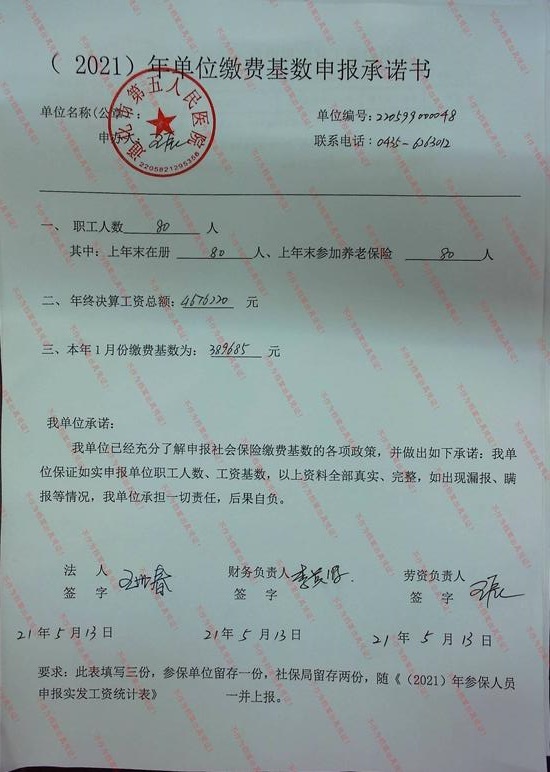 （ 2021）年单位缴费基数申报承诺书
单位名称(公章)：
单位编号: 220599000048
通化市第五人民医院
2205821295356
申办人:
联系电话: 0435-6263012
一、 职工人数 80 人
其中: 上年末在册 80 人、上年末参加养老保险 80 人
二、 年终决算工资总额: 4576220 元
三、本年1月份缴费基数为: 389685 元
我单位承诺:
我单位已经充分了解申报社会保险缴费基数的各项政策，并做出如下承诺: 我单
位保证如实申报单位职工人数、工资基数，以上资料全部真实、完整，如出现漏报、瞒
报等情况，我单位承担一切责任，后果自负。
法 人
签 字
财务负责人
签 字
劳资负责人
签 字
21年5月13日
21年5月13日
21年5月13日
要求: 此表填写三份，参保单位留存一份，社保局留存两份，随《（2021)年参保人员
申报实发工资统计表》 一并上报。